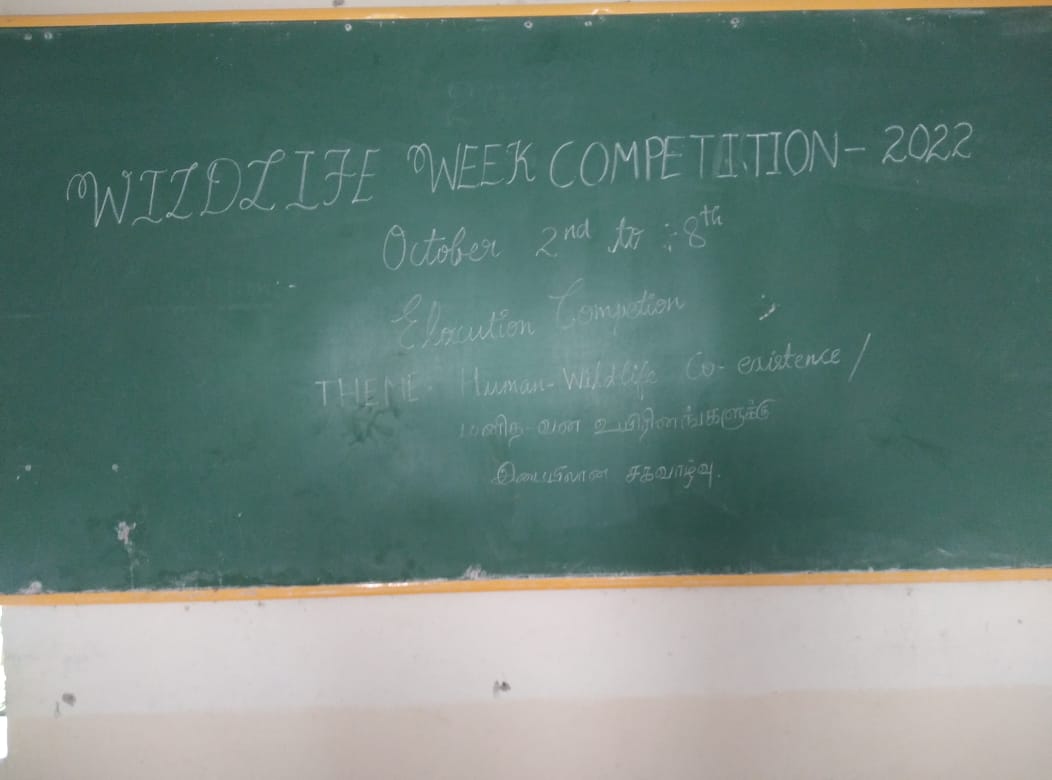 WILDLIFE WEEK COMPETITION - 2022
October 2nd to 8th
Elocution Competion
THEME. Human-Wildlife Co-existence /
மனித-வன உயிரினங்களுக்கு
இடையிலான சகவாழ்வு.